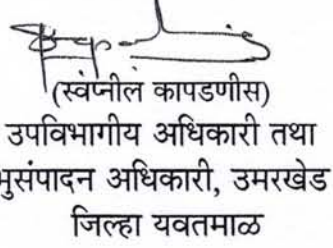 (स्वप्नील कापडणीस)
उपविभागीय अधिकारी तथा
भुसंपादन अधिकारी, उमरखेड
जिल्हा यवतमाळ